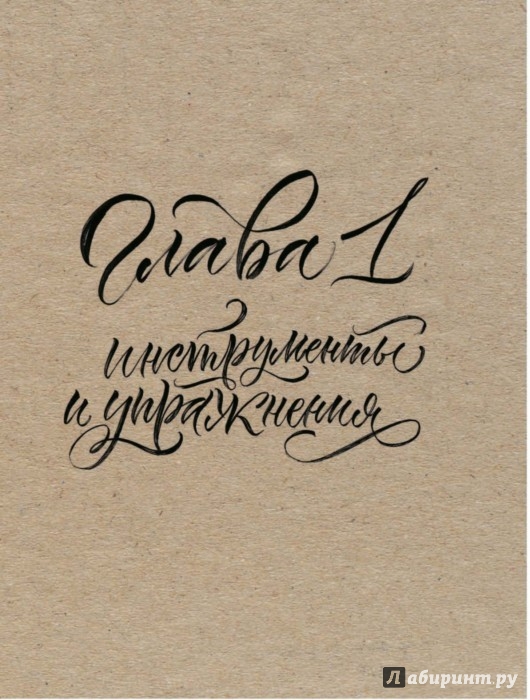 Глава 1
инструменты
и упражнения
Лабиринт.ру